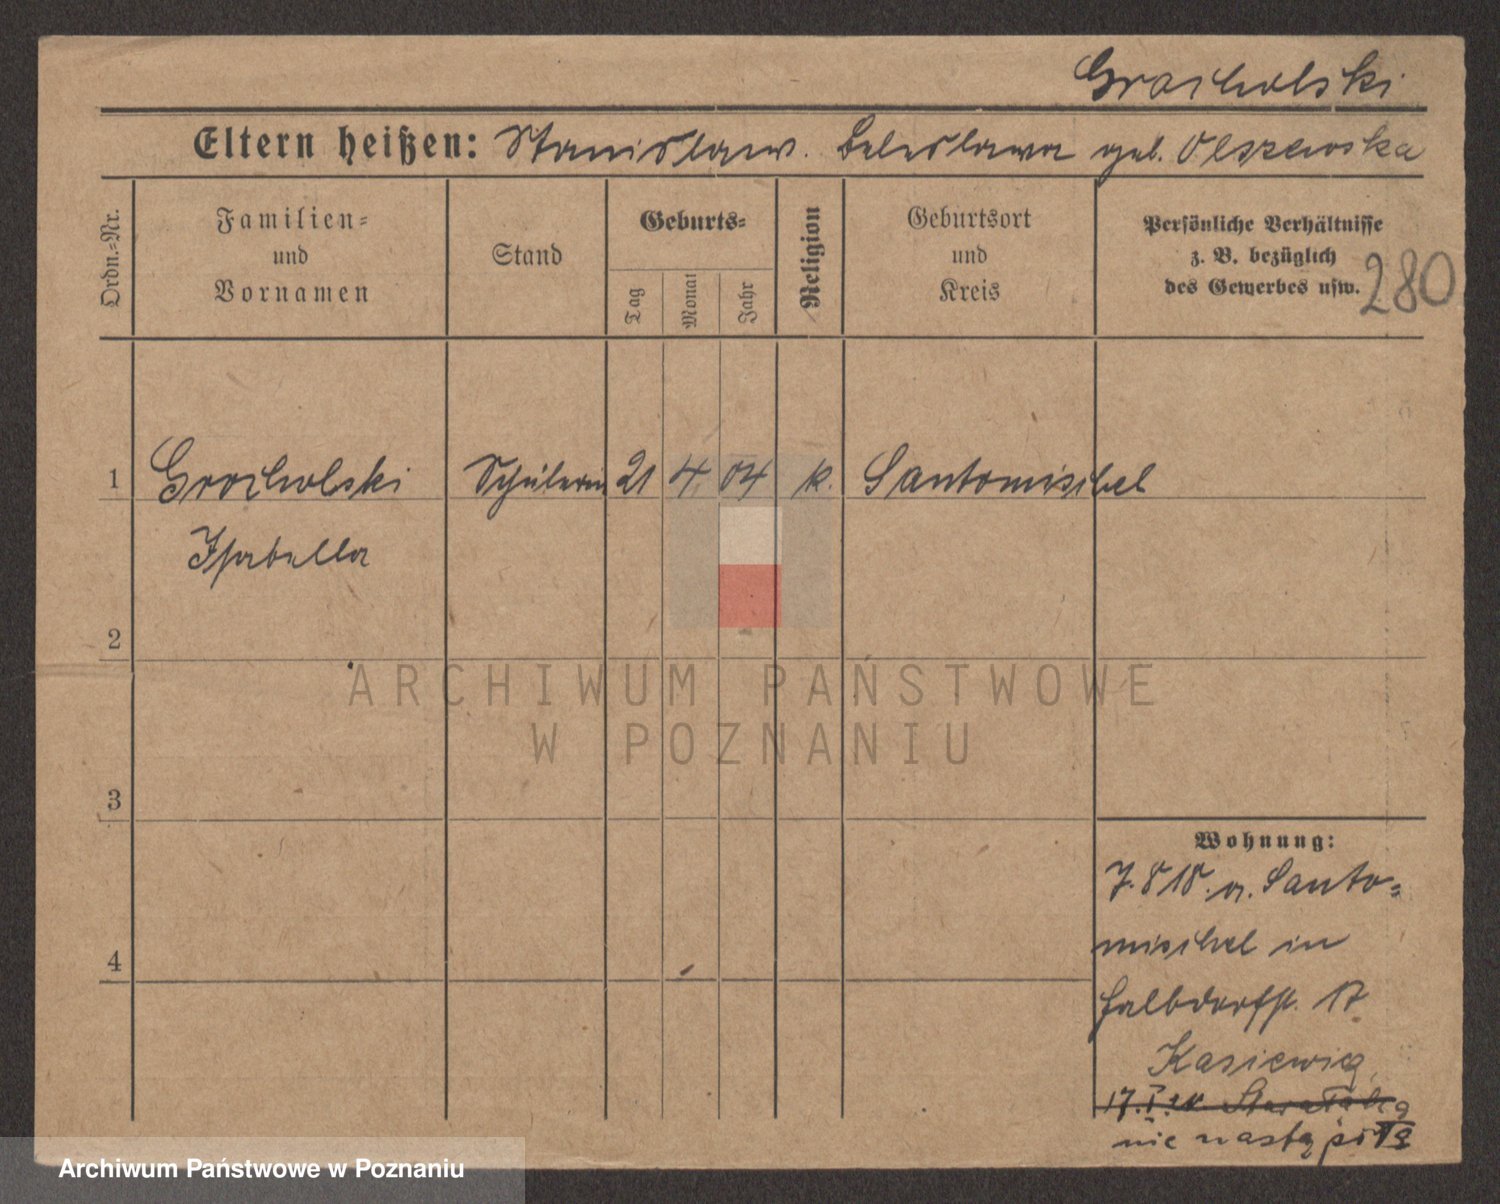 Grocholski
Eltern heißen: Stanislaw. Boleslawa geb. Olszewska
Ordn.=Nr.
Familien=
und
Vornamen
Stand
Geburts=
Tag
Monat
Jahr
Religion
Geburtsort
und
Kreis
Persönliche Verhältnisse
z. B. bezüglich
des Gewerbes usw.
280
1
Grocholski Schülerin 21 4. 04 k. Santomischel
Isabella
2
3
4
Wohnung:
7.8 18. a. Santo=
mischel in
Halbdorfst. 17
Kasiewicz
17.I.
nie nastąpiło
ARCHIWUM PAŃSTWOWE
W POZNANIU
Archiwum Państwowe w Poznaniu